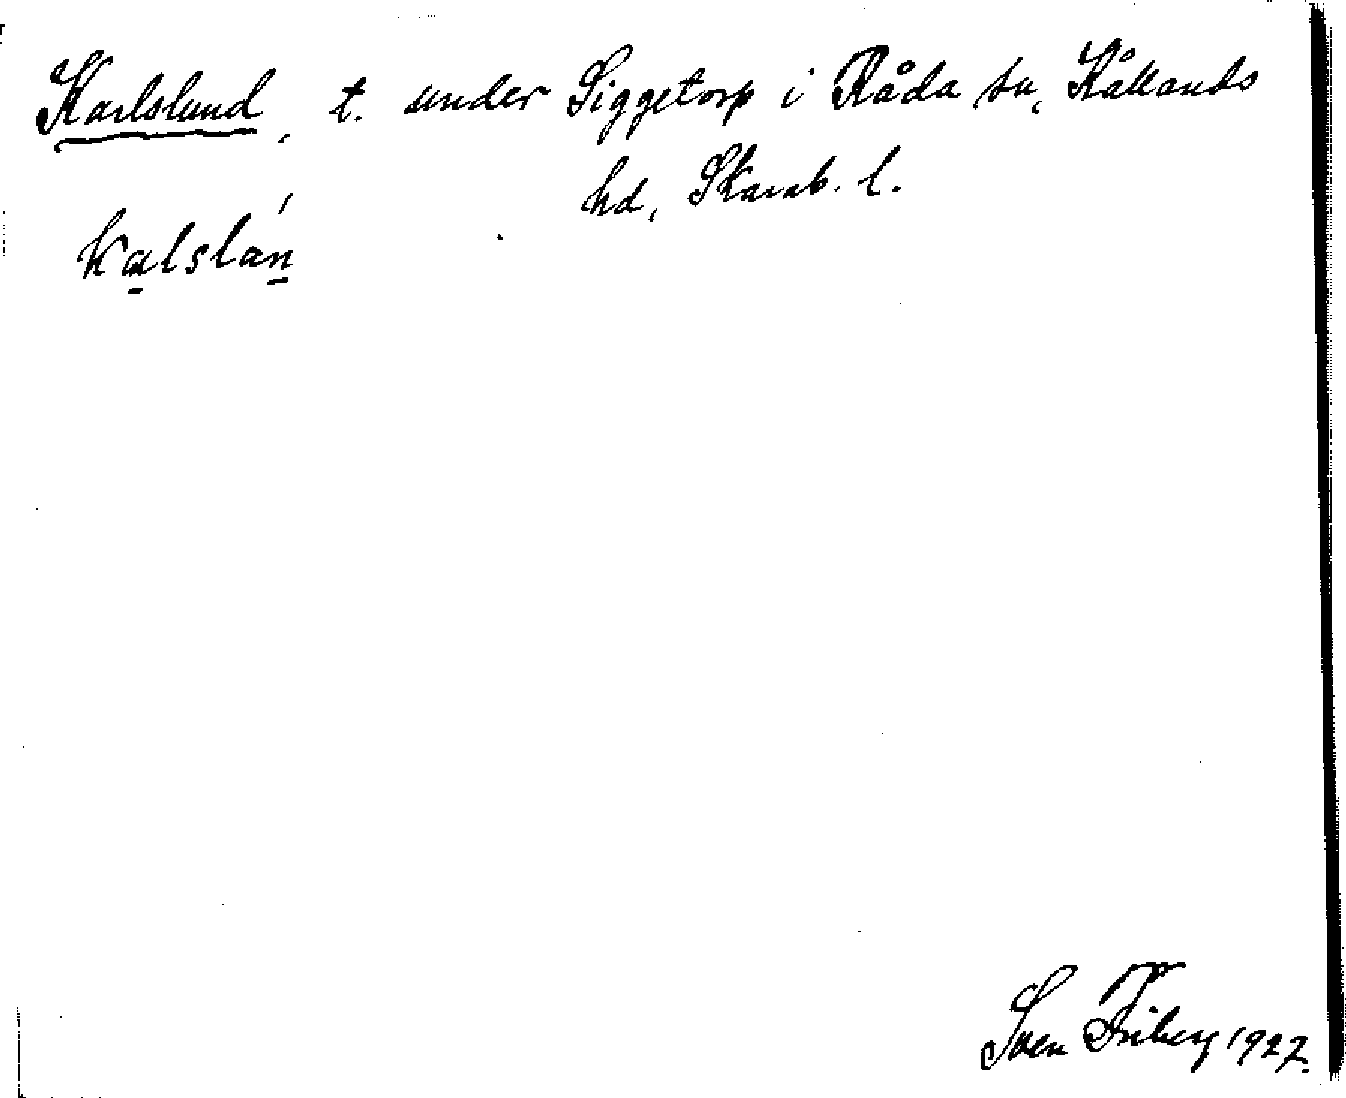 Karlslund, t. under Siggetorp i Råda sn, Kållands
hd, Skarab. l.
kalslán
Sven Friberg 1927.